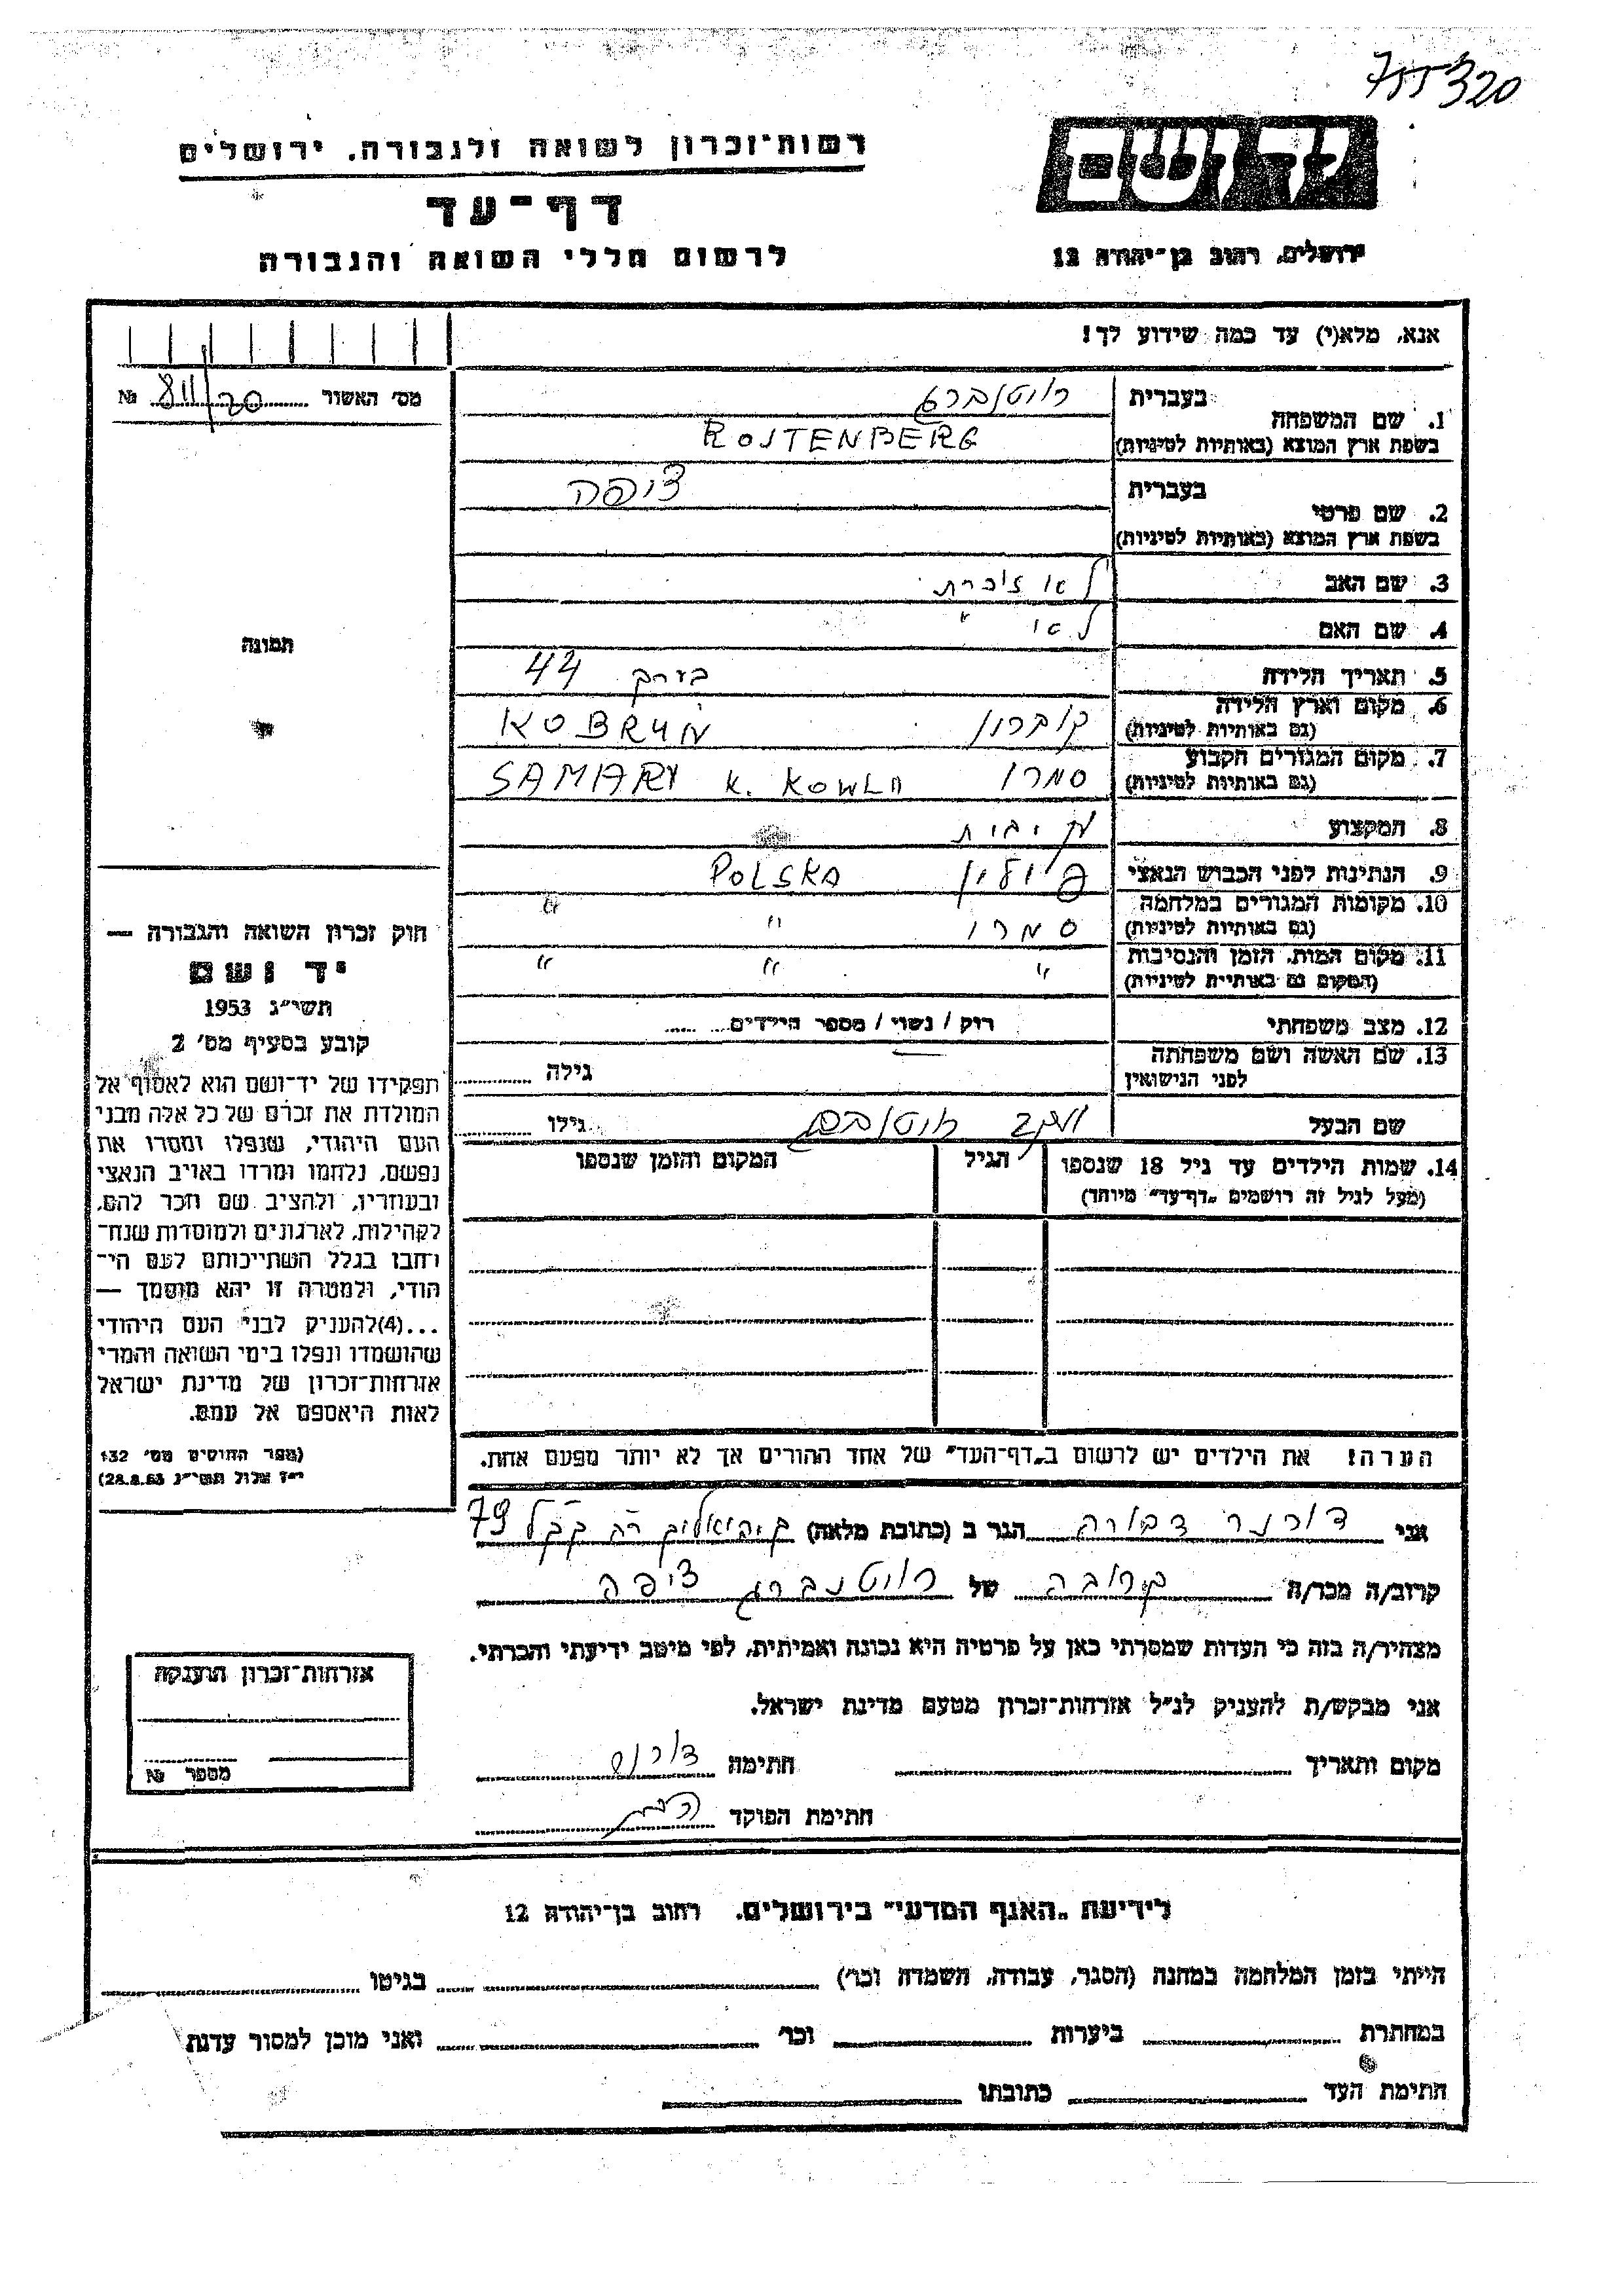 320
רשות־זכרון לשואה ולגבורה, ירושלים
יד ושם
דף־עד
לרשום חללי השואה והגבורה
ירושלים, רחוב בן־יהודה 12
אנא, מלא(י) עד כמה שידוע לך!
מס׳ האשור 811/20 №
1. שם המשפחה
בעברית רוטנברג
בשפת ארץ המוצא (באותיות לטיניות) ROJTENBERG
2. שם פרטי
בעברית ציפה
בשפת ארץ המוצא (באותיות לטיניות)
3. שם האב לא זוכרת
4. שם האם לא "
5. תאריך הלידה בערך 44
6. מקום וארץ הלידה
(גם באותיות לטיניות) קוברין KOBRYN
7. מקום המגורים הקבוע
(גם באותיות לטיניות) סמרי SAMARY K. KOWLA
8. המקצוע
9. הנתינות לפני הכבוש הנאצי פולין POLSKA
10. מקומות המגורים במלחמה
(גם באותיות לטיניות) סמרי " "
11. מקום המות, הזמן והנסיבות
(המקום גם באותיות לטיניות) " " "
12. מצב משפחתי רווק / נשוי / מספר הילדים
13. שם האשה ושם משפחתה
לפני הנישואין גילה
שם הבעל יעקב רוטנברג גילו
14. שמות הילדים עד גיל 18 שנספו
(מעל לגיל זה רושמים „דף־עד״ מיוחד)
הגיל
המקום והזמן שנספו
הערה! את הילדים יש לרשום ב„דף־העד״ של אחד ההורים אך לא יותר מפעם אחת.
תמונה
חוק זכרון השואה והגבורה —
יד ושם
תשי״ג 1953
קובע בסעיף מס׳ 2
תפקידו של יד־ושם הוא לאסוף אל
המולדת את זכרם של כל אלה מבני
העם היהודי, שנפלו ומסרו את
נפשם, נלחמו ומרדו באויב הנאצי
ובעוזריו, ולהציב שם וזכר להם,
לקהילות, לארגונים ולמוסדות שנח־
רחבו בגלל השתייכותם לעם הי־
הודי, ולמטרה זו יהא מוסמך —
...(4)להעניק לבני העם היהודי
שהושמדו ונפלו בימי השואה והמרי
אזרחות־זכרון של מדינת ישראל
לאות היאספם אל עמם.
(ספר החוקים מס׳ 132
י״ז אלול תשי״ג 28.8.53)
אני דורנר דבורה הגר ב (כתובת מלאה) 79
קרוב/ה מכר/ה קרובה של רויטנברג ציפה
מצהיר/ה בזה כי העדות שמסרתי כאן על פרטיה היא נכונה ואמיתית, לפי מיטב ידיעתי והכרתי.
אני מבקש/ת להעניק לנ״ל אזרחות־זכרון מטעם מדינת ישראל.
מקום ותאריך חתימה
חתימת הפוקד
אזרחות־זכרון הוענקה
מספר №
לידיעת „האגף המדעי״ בירושלים, רחוב בן־יהודה 12
הייתי בזמן המלחמה במחנה (הסגר, עבודה, השמדה וכו׳) בגיטו
במחתרת ביערות וכו׳ ואני מוכן למסור עדות
חתימת העד כתובתו